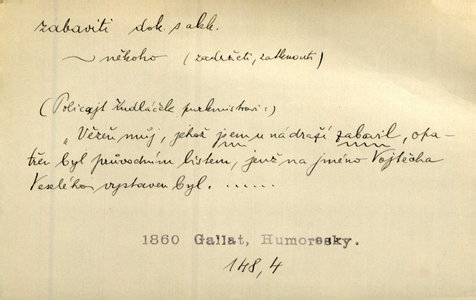 zabaviti dok. s akk.
~ někoho (zadržeti, zatknouti)
(Policajt Kudláček purkmistrovi:)
„Vězeň můj, jehož jsem u nádraží zabavil, opa-
třen byl průvodním listem, jenž na jméno Vojtěcha
Veselého vystaven byl. ......
1860 Gallat, Humoresky.
148,4